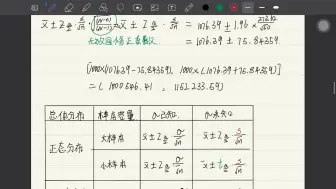 x̄ ± Z α/2 · s/√n · √((N-n)/(N-1)) ≈ x̄ ± Z α/2 · s/√n = 1076.39 ± 1.96 ×
= 1076.39 ± 75.84359
[1000×(1076.39-75.84359), 1000×(1076.39+75.84359)]
= (1000546.41, 1152233.59)
总体分布 样本容量 σ已知 σ未知
正态分布 大样本 x̄ ± Z α/2 · σ/√n x̄ ± Z α/2 · s/√n
小样本 x̄ ± Z α/2 · σ/√n x̄ ± t α/2 · s/√n